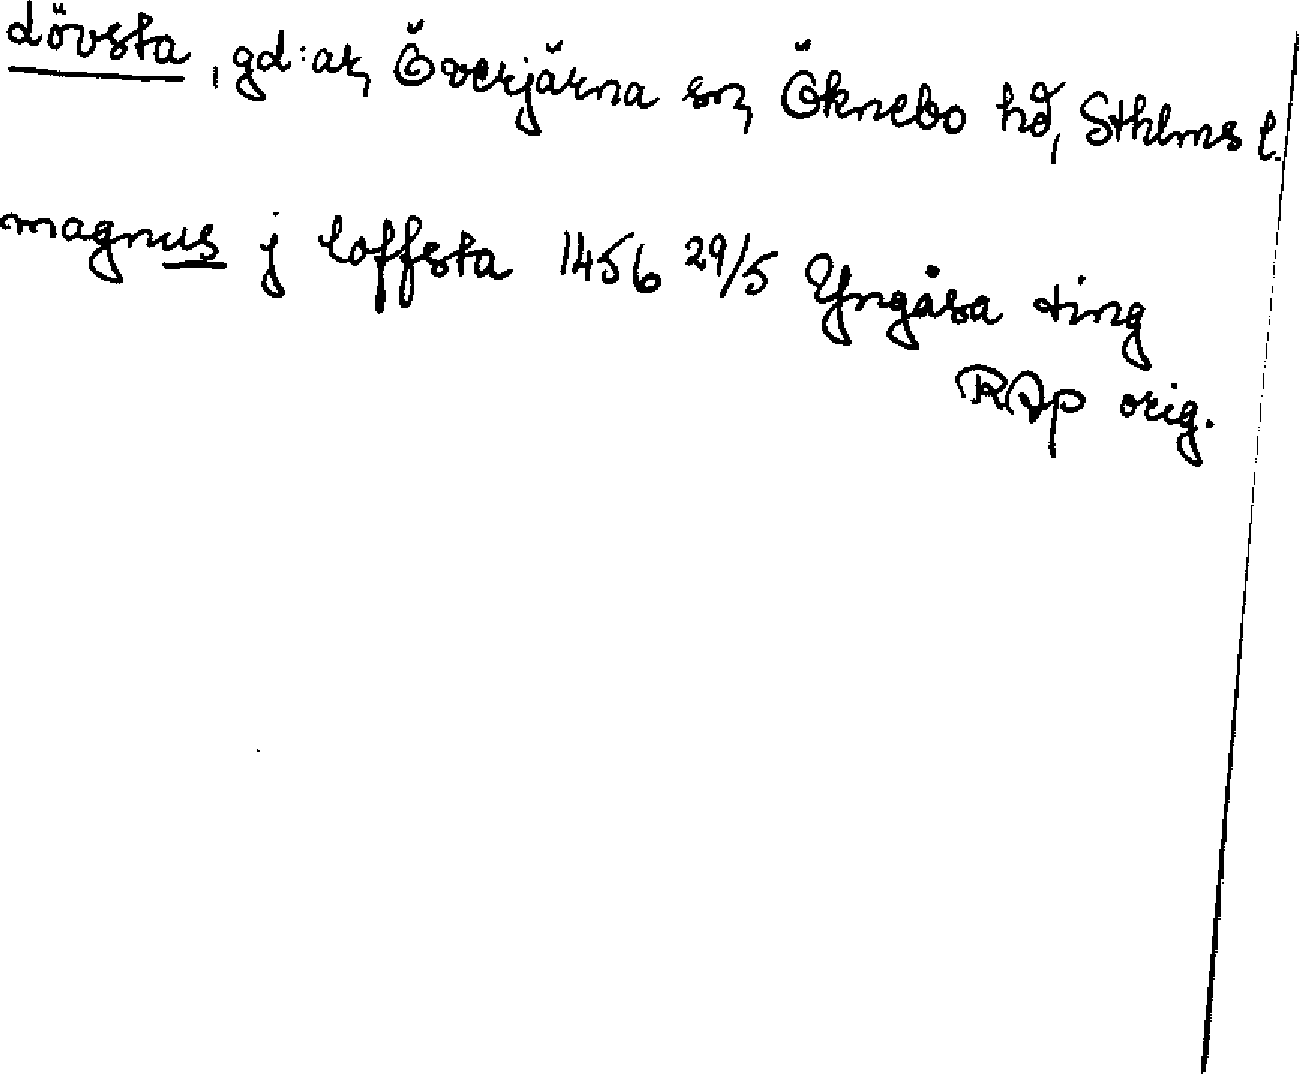 Lövsta, gd:ar, Överjärna sn, Öknebo hd, Sthlms l.
magnus j loffsta 1456 29/5 Yngåsa ting
RAp orig.